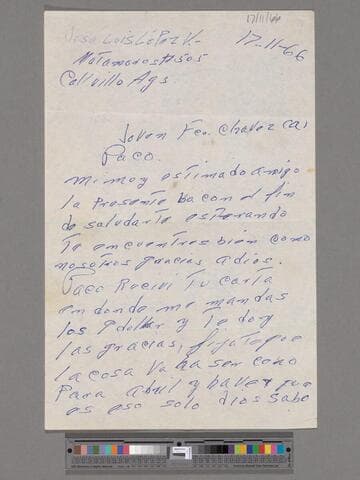 17/11/66
Jose Luis López V.-
17-11-66
Matamoros #505
Callvillo Ags
Joven Fco. Chavez (a)
Paco.
mi muy estimado amigo
la presente ba con el fin
de saludarte esperando
te encuentres bien como
nosotros gracias a dios.
Paco Recivi Tu carta
en donde me mandas
los dollar y Te doy
las gracias, fijate que
la cosa va ha ser como
Para abril y haver que
es eso solo dios sabe